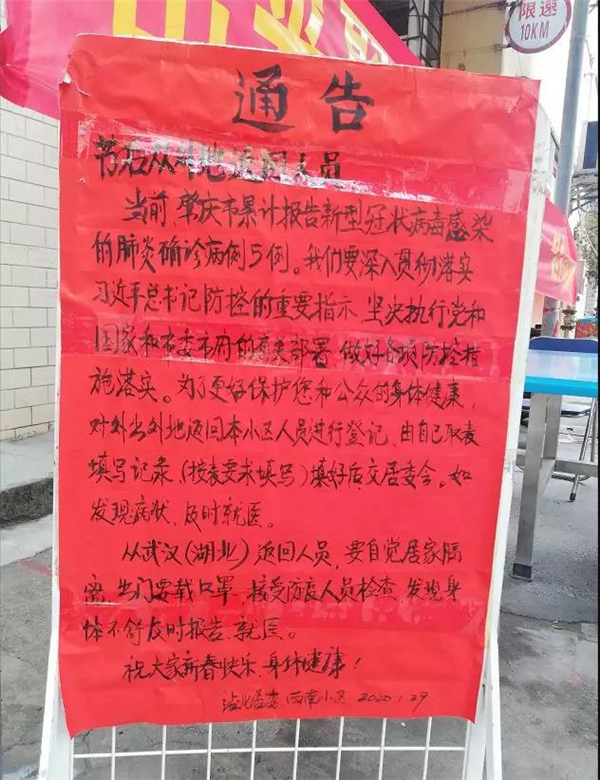 限速
10KM
通告
节后从外地返回人员
当前,肇庆市累计报告新型冠状病毒感染
的肺炎确诊病例5例。我们要深入贯彻落实
习近平总书记防控的重要指示,坚决执行党和
国家和市委市府的决部署,做好各项防控措
施落实。为了更好保护您和公众的身体健康,
对外出外地返回本小区人员进行登记,由自己取表
填写记录、(按表要求填写)填好后交居委会。如
发现病状,及时就医。
从武汉(湖北)返回人员,要自觉居家隔
离,出门要载口罩,接受防疫人员检查,发现身
体不舒及时报告、就医。
祝大家新春快乐,身体健康!
居委 西南小区 2020.1.29